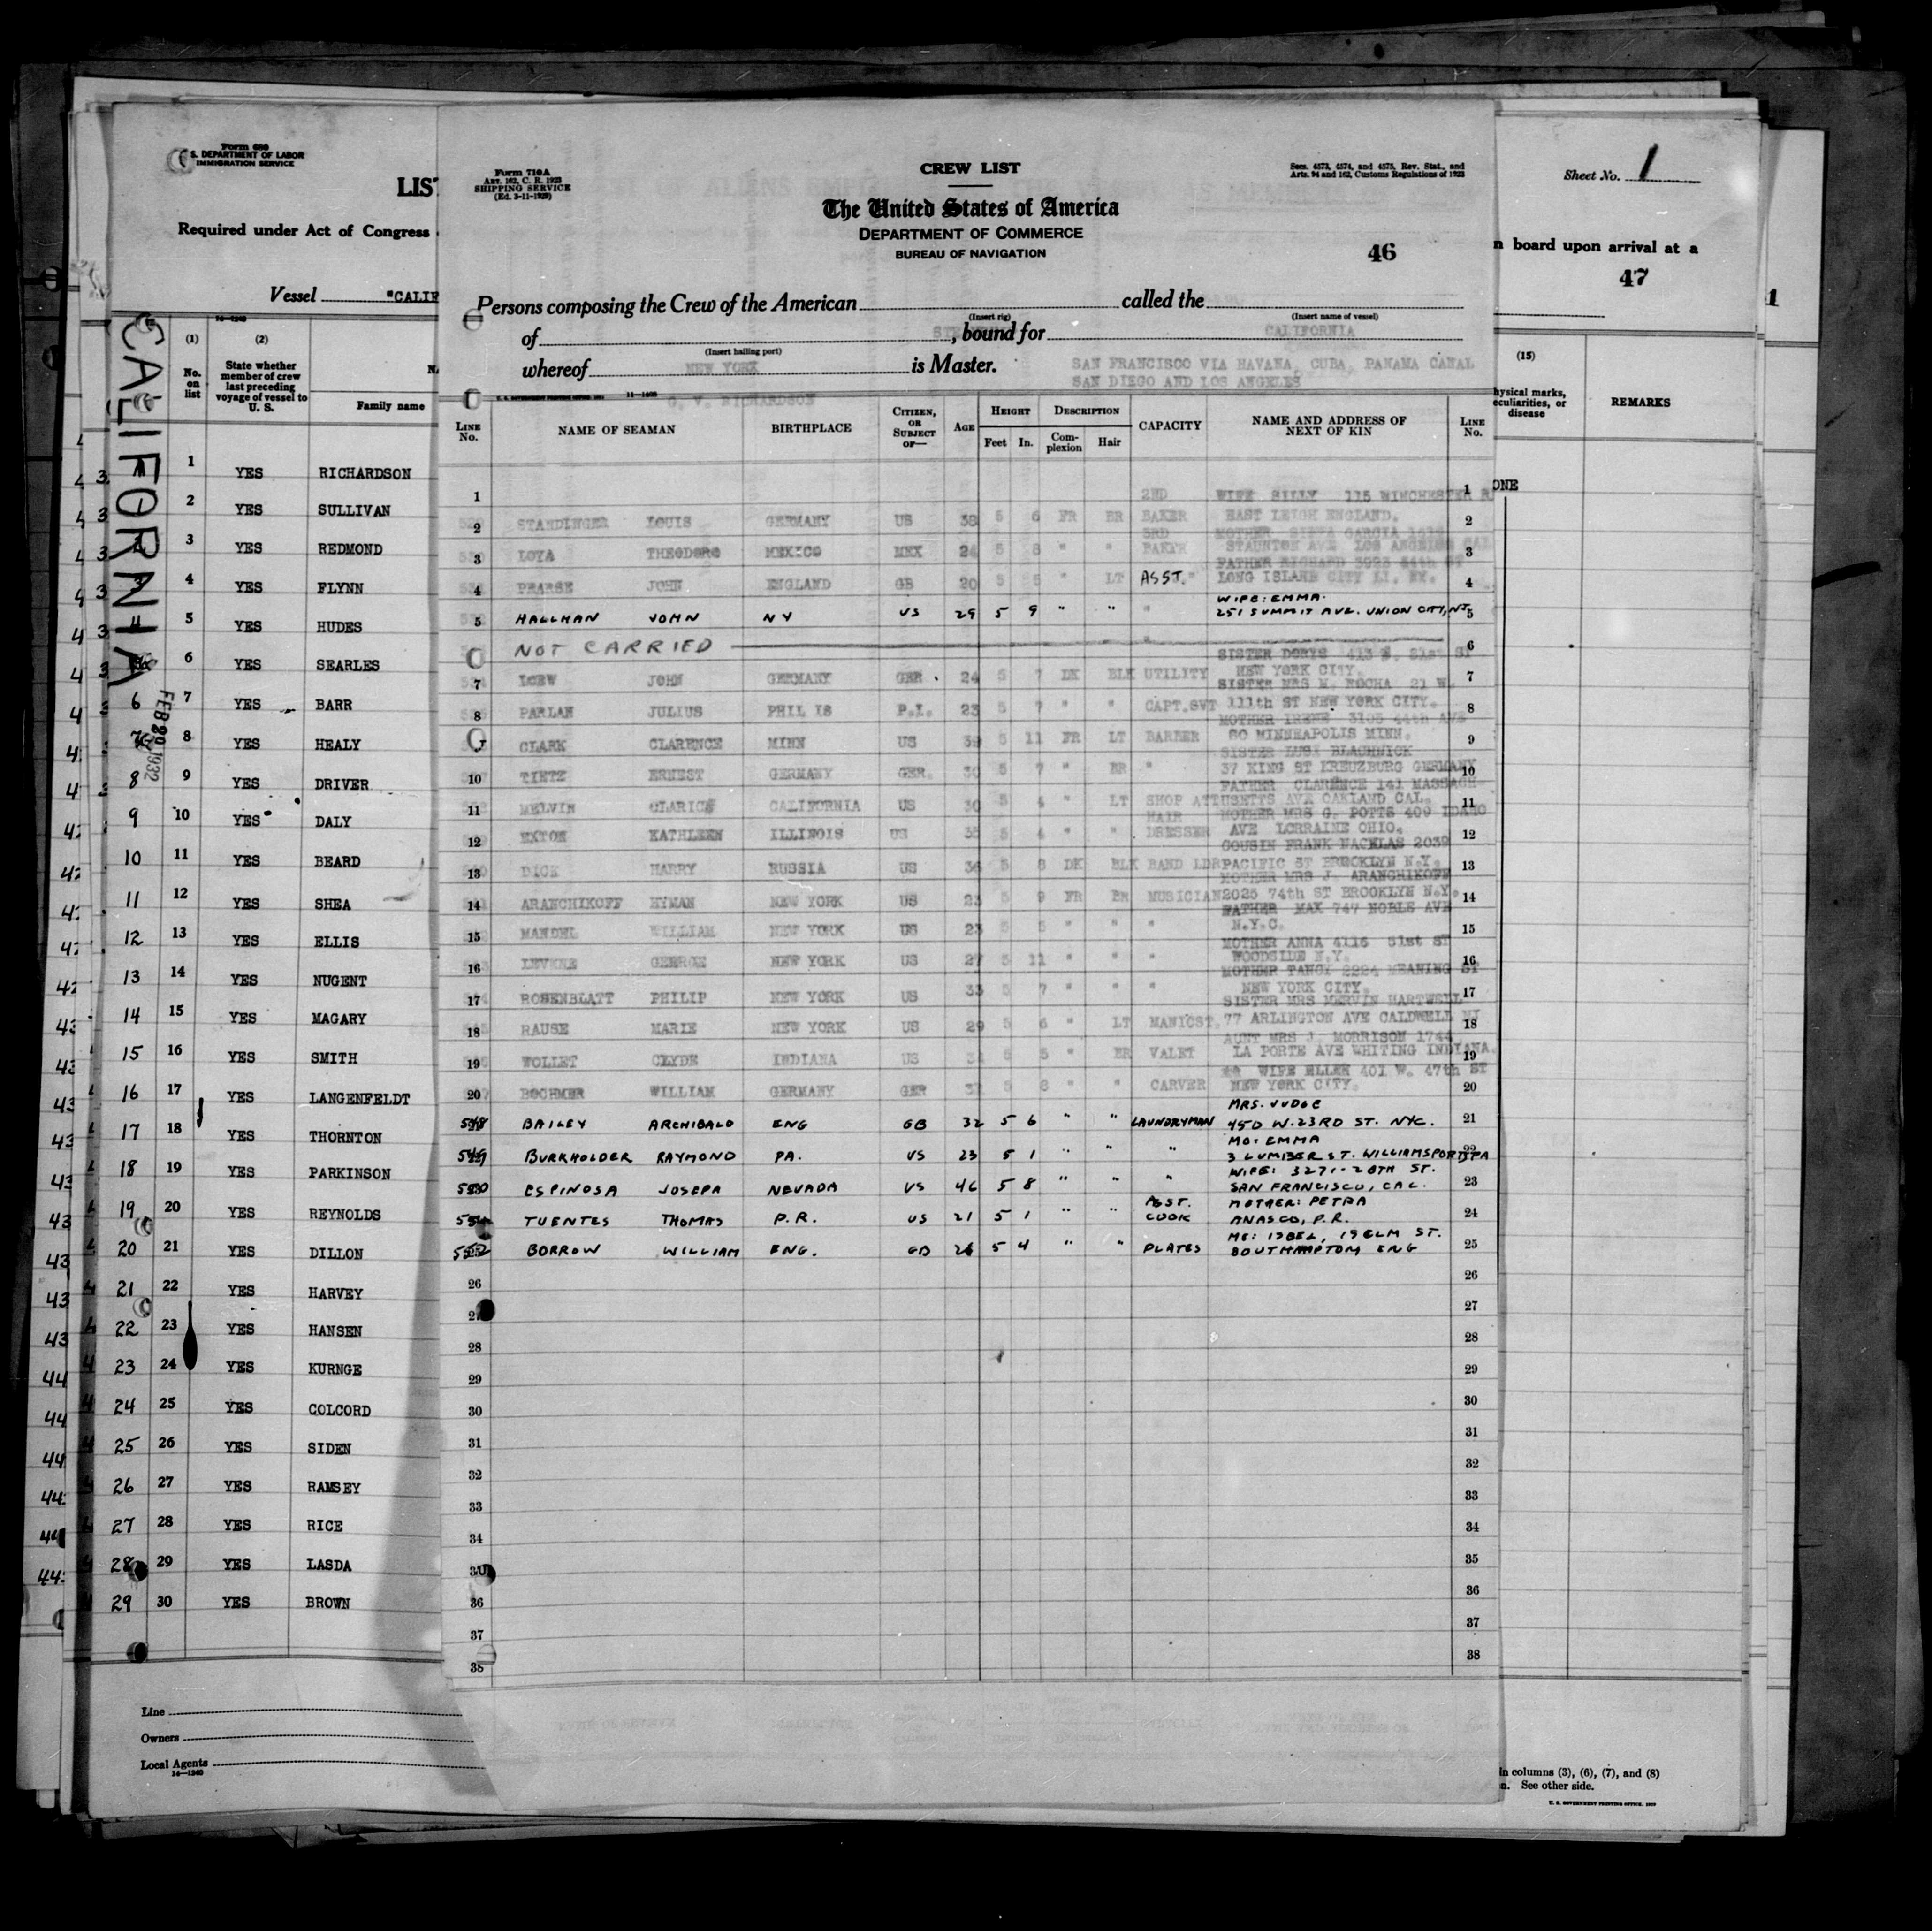 Form 680
S. DEPARTMENT OF LABOR
IMMIGRATION SERVICE
LIST
Required under Act of Congress
Vessel "CALIF
CALIFORNIA
FEB 29 1932
(1) (2)
No. on list
State whether member of crew last preceding voyage of vessel to U. S.
Family name
1 YES RICHARDSON
2 YES SULLIVAN
3 YES REDMOND
4 YES FLYNN
5 YES HUDES
6 YES SEARLES
6 7 YES BARR
8 YES HEALY
8 9 YES DRIVER
9 10 YES DALY
10 11 YES BEARD
11 12 YES SHEA
12 13 YES ELLIS
13 14 YES NUGENT
14 15 YES MAGARY
15 16 YES SMITH
16 17 YES LANGENFELDT
17 18 YES THORNTON
18 19 YES PARKINSON
19 20 YES REYNOLDS
20 21 YES DILLON
21 22 YES HARVEY
22 23 YES HANSEN
23 24 YES KURNGE
24 25 YES COLCORD
25 26 YES SIDEN
26 27 YES RAMSEY
27 28 YES RICE
28 29 YES LASDA
29 30 YES BROWN
Line
Owners
Local Agents
14—1240
Form 710A
ART. 162, C. R. 1923
SHIPPING SERVICE
(Ed. 3-11-1929)
CREW LIST
Secs. 4573, 4574, and 4575, Rev. Stat., and
Arts. 94 and 162, Customs Regulations of 1923
The United States of America
DEPARTMENT OF COMMERCE
BUREAU OF NAVIGATION
46
Persons composing the Crew of the American called the
(Insert rig) (Insert name of vessel)
CALIFORNIA
of , bound for
(Insert hailing port)
whereof NEW YORK is Master.
SAN FRANCISCO VIA HAVANA, CUBA, PANAMA CANAL
SAN DIEGO AND LOS ANGELES
G. V. RICHARDSON
LINE No. NAME OF SEAMAN BIRTHPLACE CITIZEN, OR SUBJECT OF— AGE HEIGHT Feet In. DESCRIPTION Complexion Hair CAPACITY NAME AND ADDRESS OF NEXT OF KIN LINE No.
1 2ND WIFE BILLY 115 WINCHESTER R 1
2 STANDINGER LOUIS GERMANY US 38 5 6 FR BR BAKER EAST LEIGH ENGLAND. 2
3RD MOTHER GARCIA
3 LOYA THEODORO MEXICO MEX 24 5 8 " " BAKER STAUNTON AVE LOS ANGELES CAL 3
FATHER RICHARD 3923 44th ST
4 PEARSE JOHN ENGLAND GB 20 5 5 " LT ASST. " LONG ISLAND CITY LI. NY. 4
WIFE: EMMA.
5 HALLMAN JOHN NY US 29 5 9 " " " 251 SUMMIT AVE. UNION CITY, NJ 5
NOT CARRIED " 6
SISTER DORIS 413 81st ST
7 LOEW JOHN GERMANY GER. 24 5 7 DK BLK UTILITY NEW YORK CITY. 7
SISTER MRS M. ROCHA 21 W.
8 PARLAN JULIUS PHIL IS P.I. 23 5 7 " " CAPT.SVT 111th ST NEW YORK CITY. 8
MOTHER IRENE 44th AVE
CLARK CLARENCE MINN US 39 5 11 FR LT BARBER SO MINNEAPOLIS MINN. 9
SISTER BLACHNICK
10 TIETZ ERNEST GERMANY GER. 30 5 7 " BR " 37 KING ST KREUZBURG GERMANY 10
FATHER CLARENCE 141 MASSACH
11 MELVIN CLARICE CALIFORNIA US 30 5 4 " LT SHOP ATT USETTS AVE OAKLAND CAL. 11
HAIR MOTHER MRS G. POTTS 409 IDAHO
12 EXTOM KATHLEEN ILLINOIS US 35 5 4 " " DRESSER AVE LORRAINE OHIO. 12
COUSIN FRANK NACKLAS 2039
13 DICK HARRY RUSSIA US 36 5 8 DK BLK BAND LDR PACIFIC ST BROOKLYN N.Y. 13
MOTHER MRS J. ARANCHIKOFF
14 ARANCHIKOFF HYMAN NEW YORK US 23 5 9 FR BR MUSICIAN 2025 74th ST BROOKLYN N.Y. 14
FATHER MAX 747 NOBLE AVE
15 MANDEL WILLIAM NEW YORK US 23 5 5 " " " N.Y.C. 15
MOTHER ANNA 4116 51st ST
16 LEVENE GEORGE NEW YORK US 27 5 11 " " " WOODSIDE N.Y. 16
MOTHER 2224 ST
17 ROSENBLATT PHILIP NEW YORK US 33 5 7 " " " NEW YORK CITY. 17
SISTER MRS MERVIN HARTWELL
18 RAUSE MARIE NEW YORK US 29 5 6 " LT MANICST. 77 ARLINGTON AVE CALDWELL NJ 18
AUNT MRS J. MORRISON 1744
19 WOLLET CLYDE INDIANA US 34 5 5 " BR VALET LA PORTE AVE WHITING INDIANA. 19
WIFE ELLEN 401 W. 47th ST
20 BOCHMER WILLIAM GERMANY GER 37 5 8 " " CARVER NEW YORK CITY. 20
MRS. JUDGE
548 BAILEY ARCHIBALD ENG GB 32 5 6 " " LAUNDRYMAN 450 W. 23RD ST. NYC. 21
MO: EMMA
549 BURKHOLDER RAYMOND PA. US 23 5 1 " " " 3 LUMBER ST. WILLIAMSPORT PA 22
WIFE: 3271-20TH ST.
550 ESPINOSA JOSEPH NEVADA US 46 5 8 " " " SAN FRANCISCO, CAL. 23
ASST. MOTHER: PETRA
551 TUENTES THOMAS P.R. US 21 5 1 " " COOK ANASCO, P.R. 24
19 ELM ST.
552 BORROW WILLIAM ENG. GB 26 5 4 " " PLATES SOUTHAMPTOM ENG 25
26 26
27 27
28 28
29 29
30 30
31 31
32 32
33 33
34 34
35 35
36 36
37 37
38 38
Sheet No. 1
n board upon arrival at a
47
(15)
hysical marks, eculiarities, or disease
REMARKS
ONE
in columns (3), (6), (7), and (8)
n. See other side.
U. S. GOVERNMENT PRINTING OFFICE. 1929